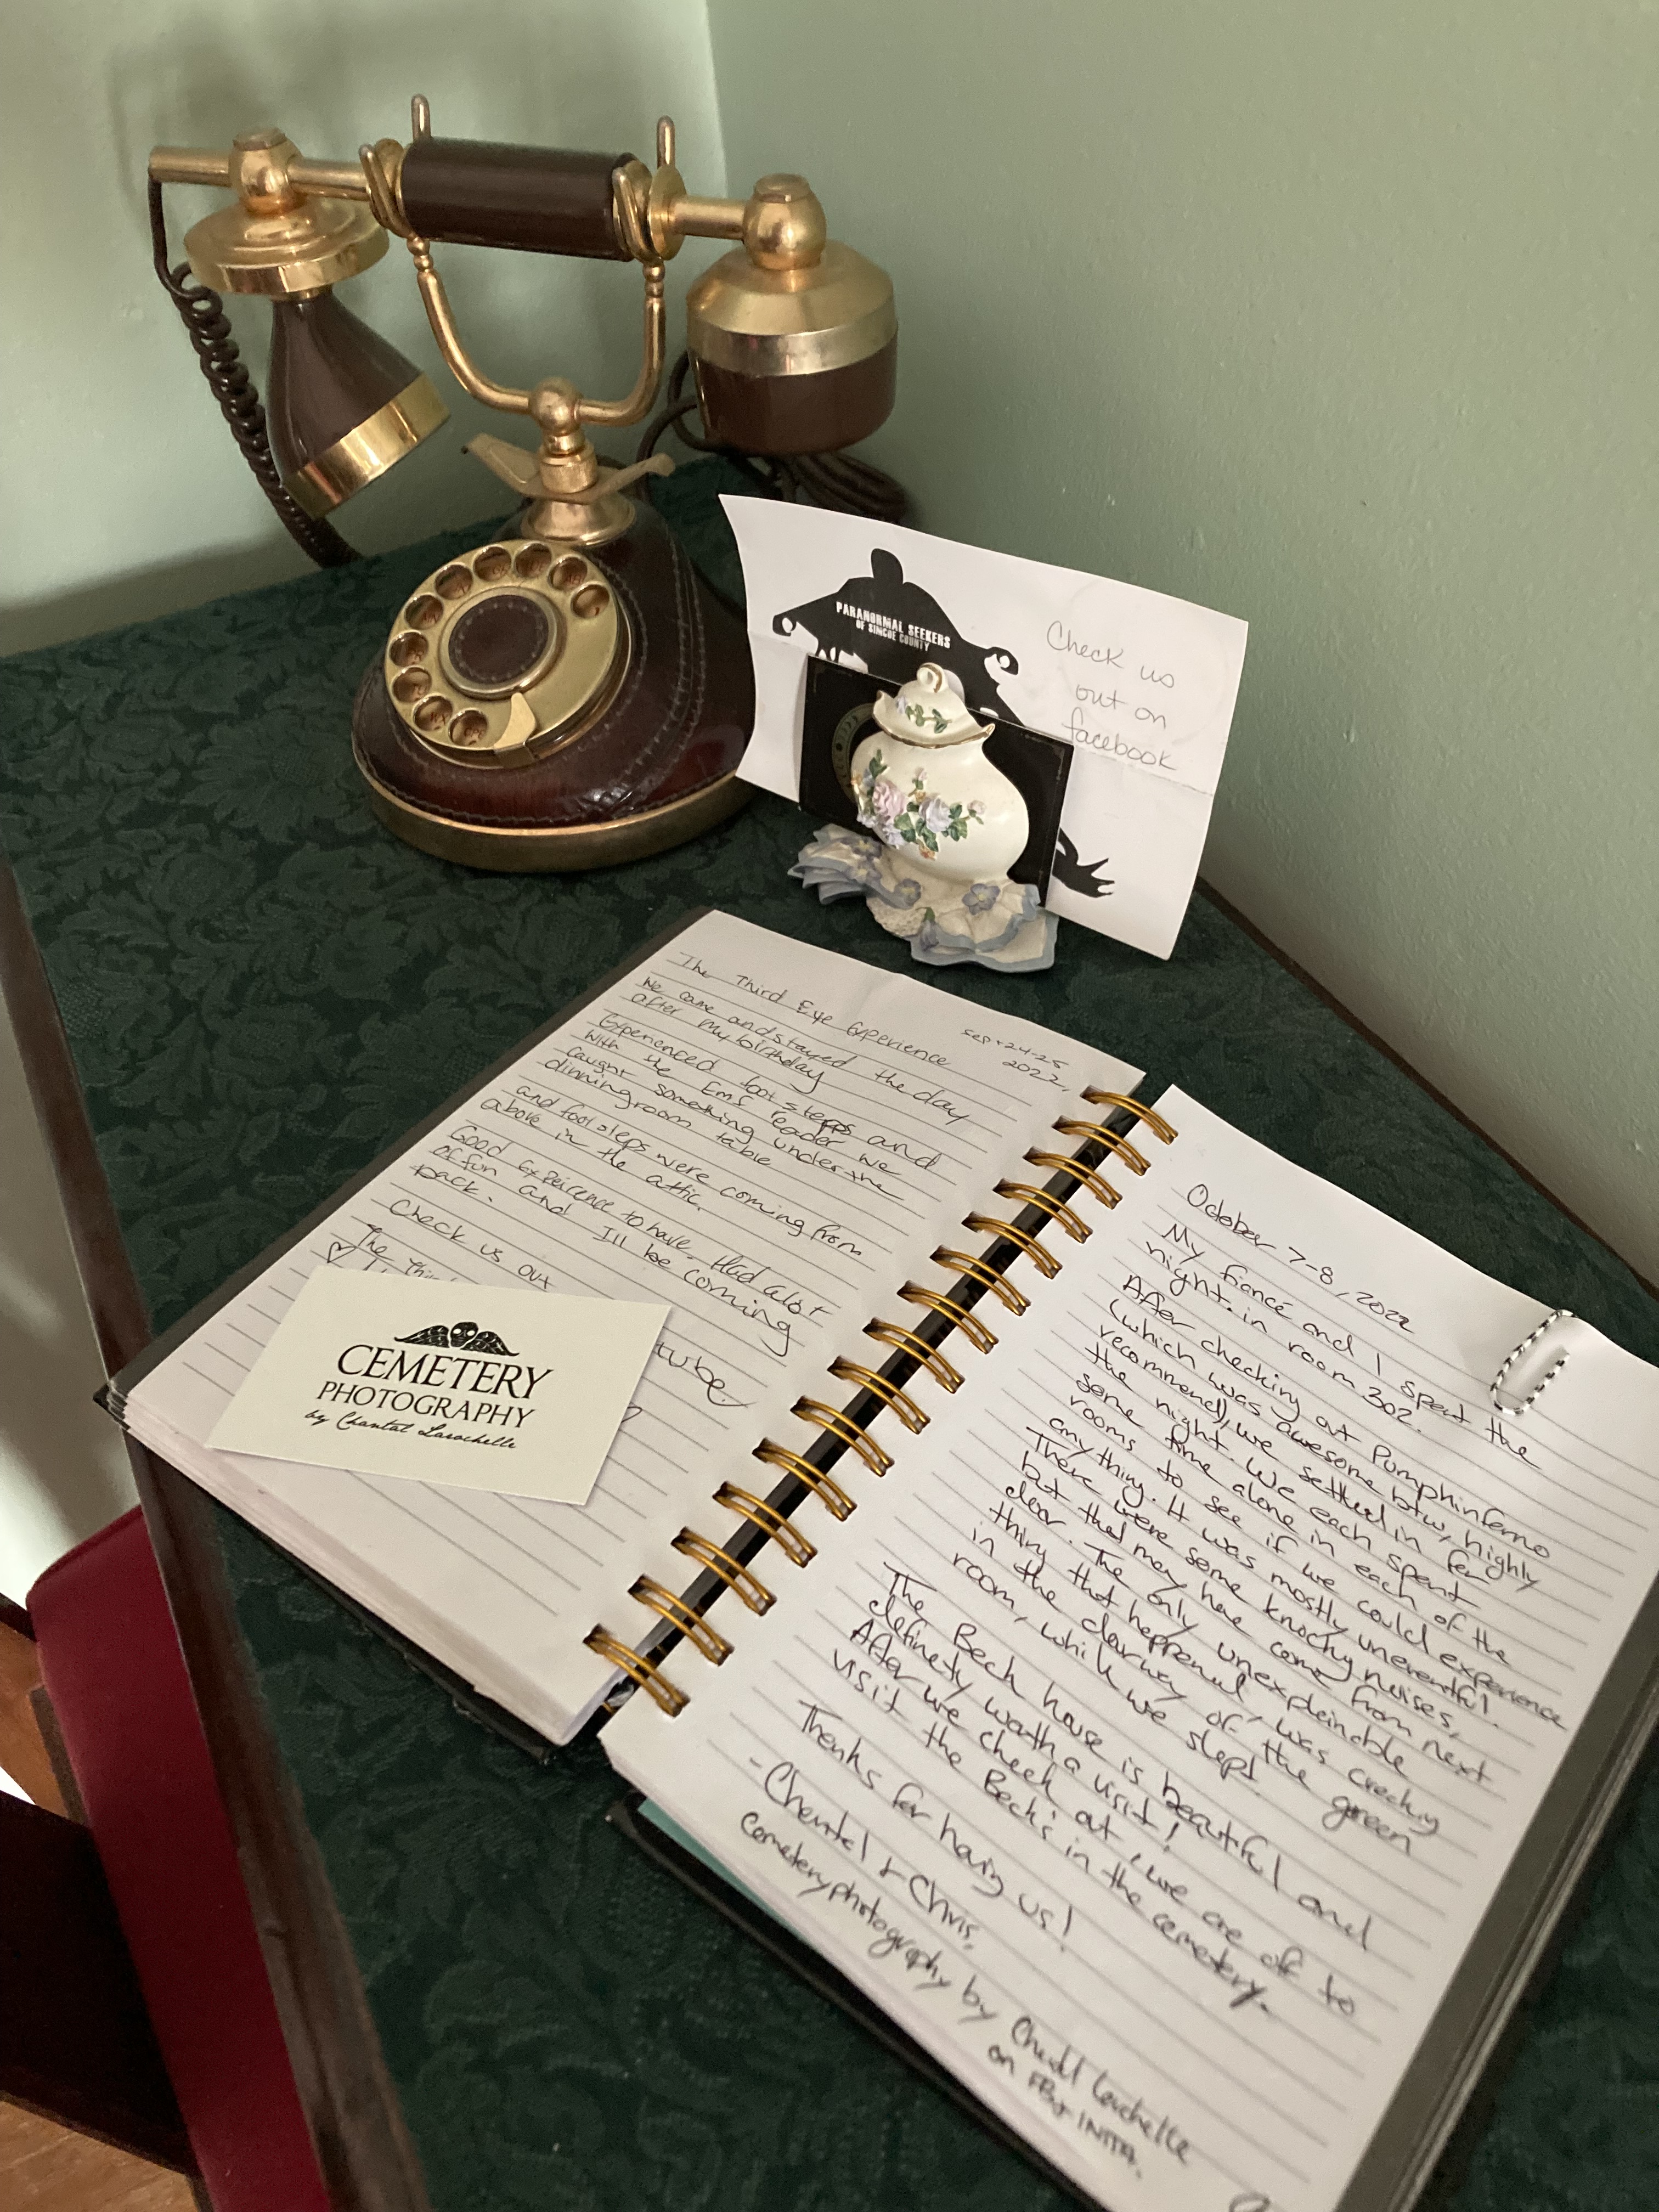 PARANORMAL SEEKERS
OF SIMCOE COUNTY
Check us
out on
facebook
The Third Eye Experience
Sept 24-25
2022,
We came and stayed the day
after my birthday
Experienced foot steps and
With the EMF reader we
caught something under the
dinning room table
and foot steps were coming from
above in the attic.
Good Expeirence to have. Had alot
of fun and I'll be coming
back.
Check us out
The Thi
tube
CEMETERY
PHOTOGRAPHY
by Chantal Larochelle
October 7-8, 2022
My fiancé and I spent the
night in room 302.
After checking out Pumpkinferno
(which was awesome btw, highly
recommend), we settled in for
the night. We each spent
some time alone in each of the
rooms to see if we could experience
anything. It was mostly uneventful.
There were some knocking noises,
but that may have come from next
door. The only unexplainable
thing that happened, was creaking
in the doorway of the green
room, while we slept.
The Beck house is beautiful and
definety worth a visit!
After we check out, we are off to
visit the Beck's in the cemetery.
Thanks for having us!
-Chantal & Chris.
cemetery photography by Chantal Larochelle
on FB & INSTA.